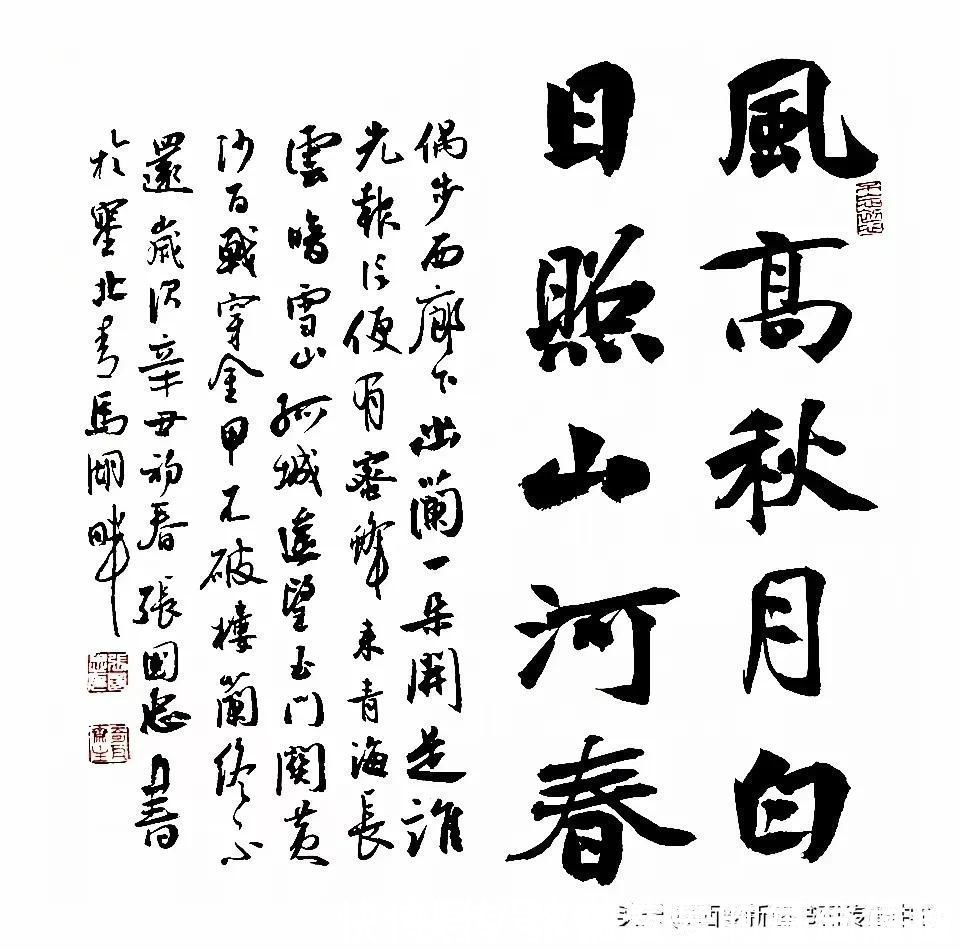 風高秋月白
日照山河春
偶步西廊下幽蘭一朵開是誰
先報信便有蜜蜂来青海長
雲暗雪山孤城遥望玉門關黄
沙百戰穿金甲不破樓蘭終不
還歲次辛丑初春張國忠書
於塞北青馬湖畔